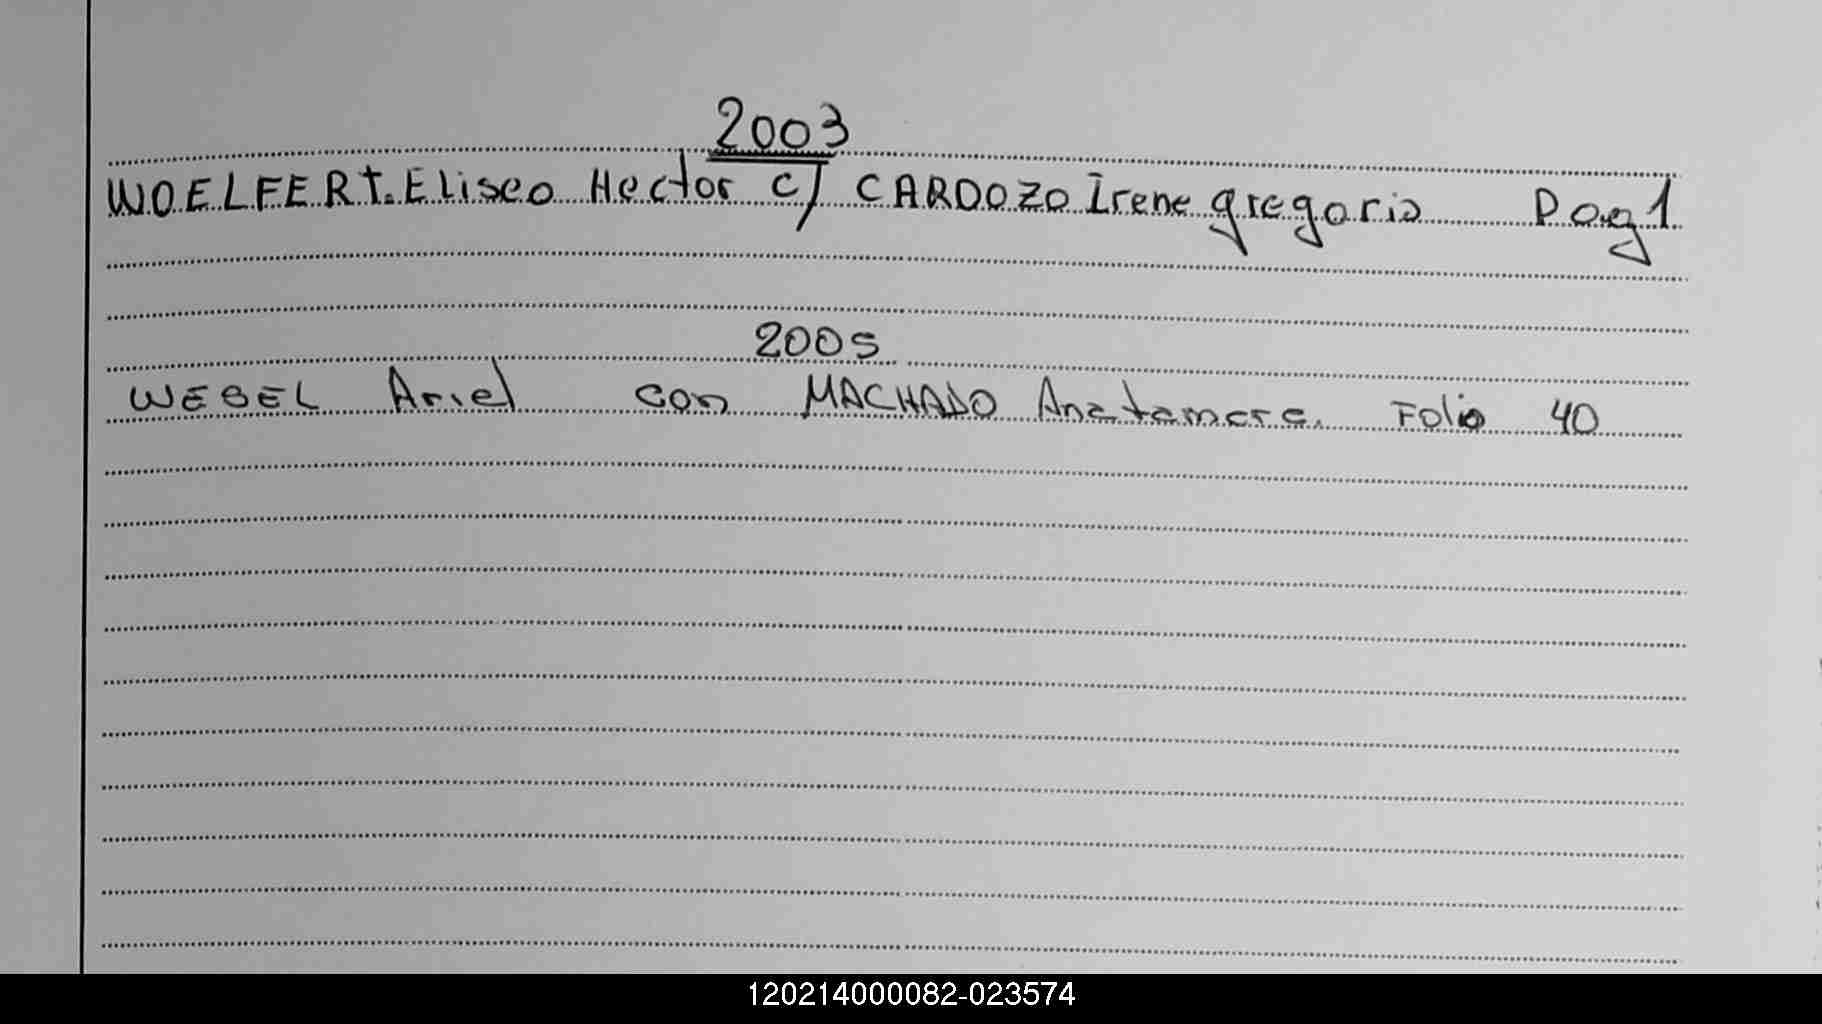 2003
WOELFERT. Eliseo Hector c/ CARDOZO Irene gregoria Pag 1
2005
WEBEL Ariel con MACHADO Anatamara. Folio 40
120214000082-023574